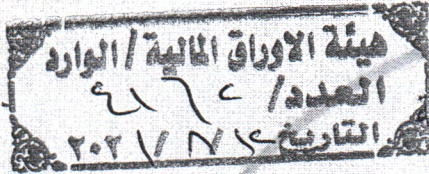 هيئة الاوراق المالية / الوارد
العدد /
التاريخ / ٨ / ٢٠٢١